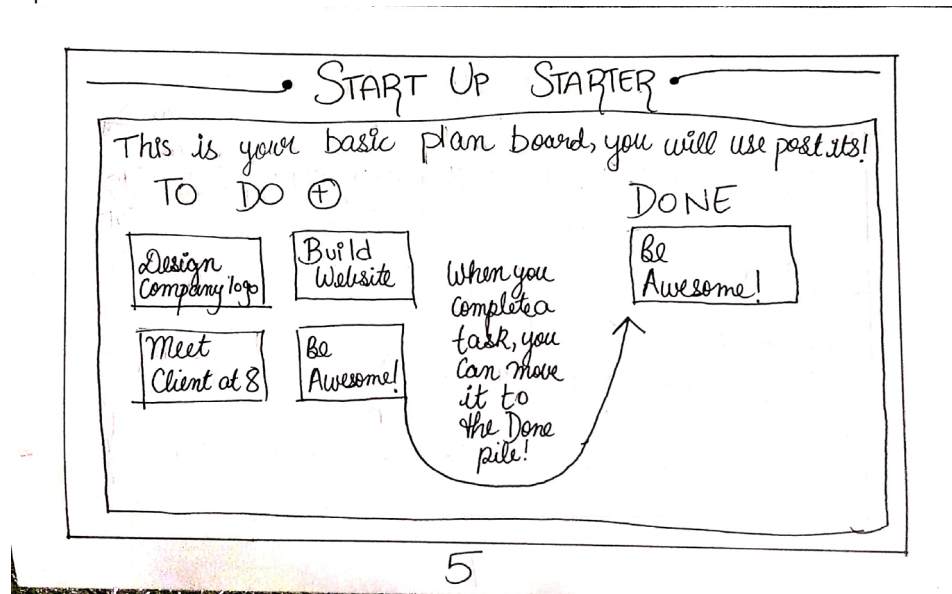 START UP STARTER
This is your basic plan board, you will use post its!
TO DO +
DONE
Design
Company logo
Build
Website
Meet
Client at 8
Be
Awesome!
When you
complete a
task, you
can move
it to
the Done
pile!
Be
Awesome!
5